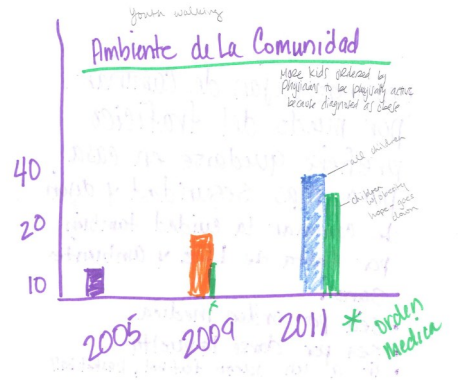 youth walking
Ambiente de La Comunidad
More kids ordered by
physicians to be physically active
because diagnosed as obese
all children
children
w/ obesity
hope goes
down
40
20
10
2005
2009
2011
* orden
Medica